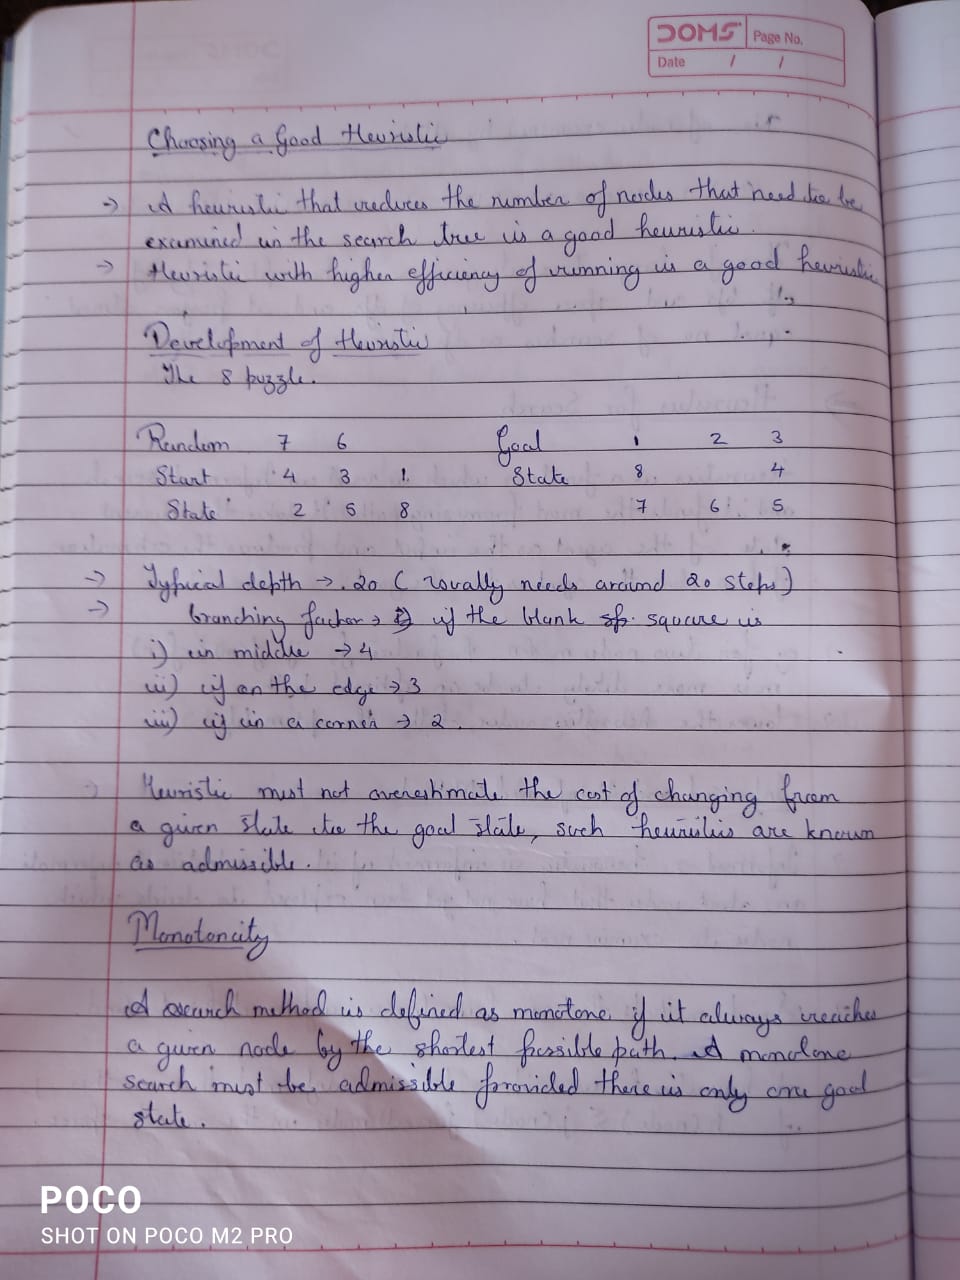 DOMS Page No.
Date / /
Choosing a Good Heuristic
→ A heuristic that reduces the number of nodes that need to be
examined in the search tree is a good heuristic.
→ Heuristic with higher efficiency of running is a good heuristic
Development of Heuristic
The 8 puzzle.
Random 7 6 Goal 1 2 3
Start 4 3 1 State 8 4
State 2 5 8 7 6 5
→ Typical depth → 20 ( usually needs around 20 steps)
→ branching factor → if the blank square is
i) in middle → 4
ii) if on the edge → 3
iii) if in a corner → 2
→ Heuristic must not overestimate the cost of changing from
a given state to the goal state, such heuristics are known
as admissible.
Monotoncity
A search method is defined as monotone if it always reaches
a given node by the shortest possible path. A monotone
search must be admissible provided there is only one goal
state.
POCO
SHOT ON POCO M2 PRO